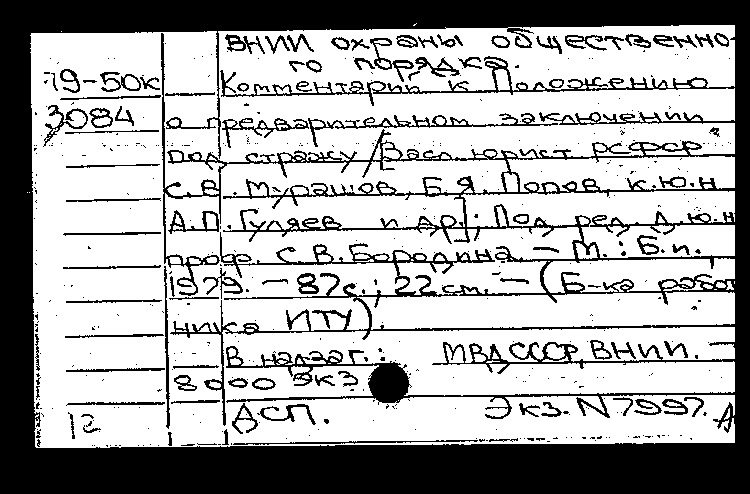 ВНИИ охраны общественно-
го порядка.
79-50к Комментарий к Положению
3084 о предварительном заключении
под стражу /[Засл. юрист РСФСР
С.В. Мурашов, Б.Я. Попов, к.ю.н
А.П. Гуляев и др.]; Под ред. д.ю.н
проф. С.В. Бородина. — М.: Б.и.,
1979. — 87с.; 22см. — (Б-ка работ
ника ИТУ).
В надзаг.: МВД СССР, ВНИИ. —
8000 экз
12 ДСП. Экз. N 7997.